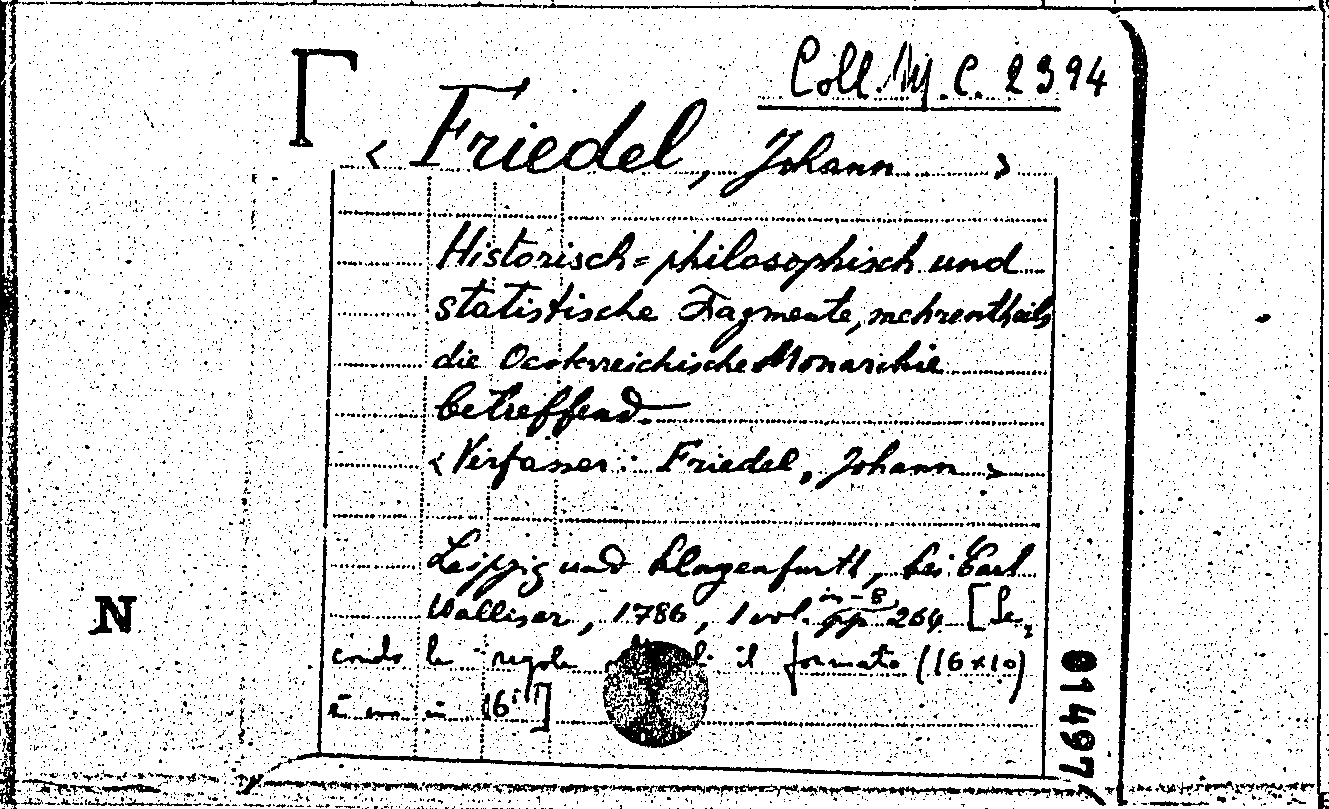 Coll. M. C. 2394
< Friedel, Johann >
Historisch=philosophisch und
statistische Fragmente, mehrentheils
die Oesterreichische Monarchie
betreffend.
< Verfasser: Friedel, Johann >
Leipzig und Klagenfurth, bei Carl
Walliser, 1786, 1 vol. in-8, pp 264 [Se,
condo le regole il formato (16x10)
è un in 16°]
N
01497